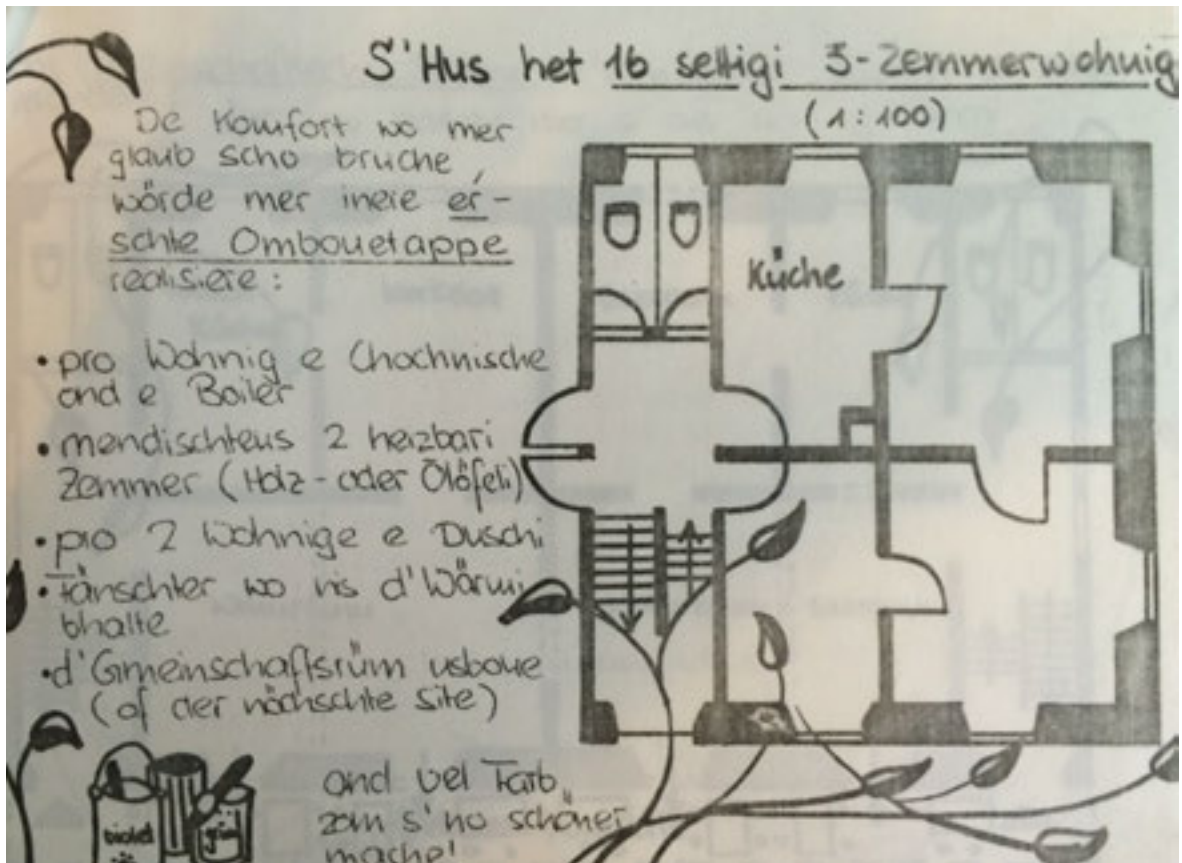 S'Hus het 16 settigi 3-Zemmerwohnig
(1:100)
De Komfort wo mer
glaub scho bruche,
wörde mer inere er-
schte Ombouetappe
realisiere:
• pro Wohnig e Chochnische
ond e Boiler
• mendischtens 2 heizbari
Zemmer (Holz- oder Ölöfeli)
• pro 2 Wohnige e Duschi
• Fänschter wo üs d'Wärmi
bhalte
• d'Gmeinschaftsrüm usboue
(of der nächschte Site)
ond vel Farb,
zom s'no schöner
mache!
Küche
violet
grün